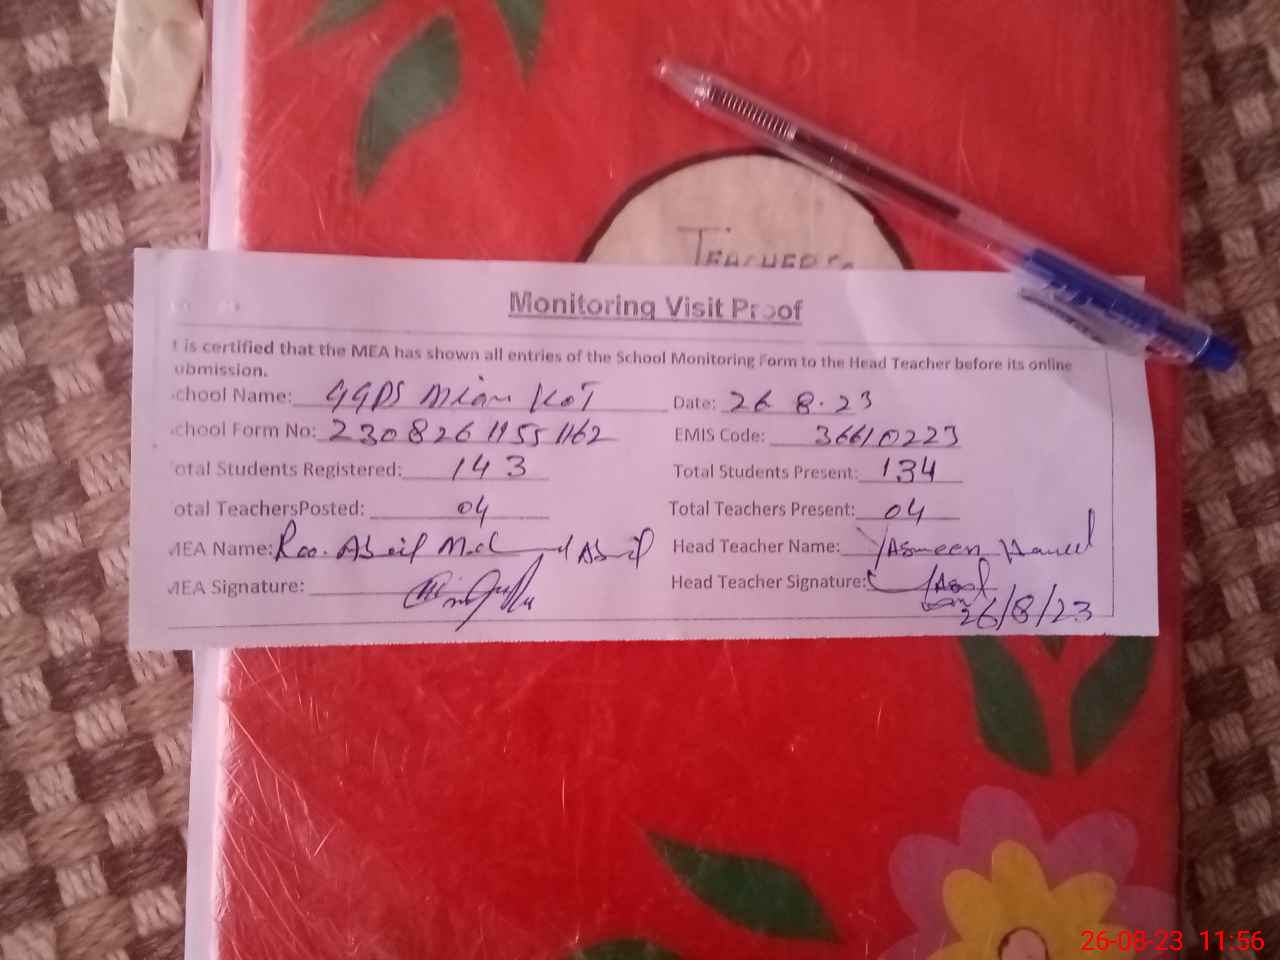 TEACHERS
Monitoring Visit Proof
t is certified that the MEA has shown all entries of the School Monitoring Form to the Head Teacher before its online
ubmission.
chool Name: GGPS Mian Kot Date: 26 8.23
chool Form No: 23082611551162 EMIS Code: 36610223
otal Students Registered: 143 Total Students Present: 134
otal TeachersPosted: 04 Total Teachers Present: 04
MEA Name: Rao. Head Teacher Name: Yasmeen
MEA Signature: Head Teacher Signature:
26/8/23
26-08-23 11:56